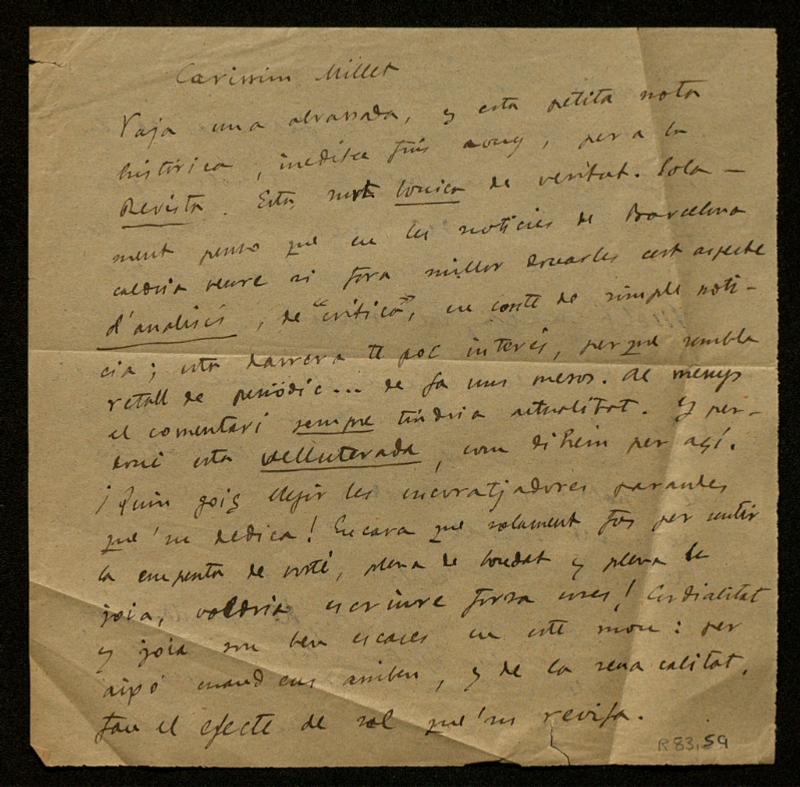 Caríssim Millet
Vaja una abrassada, y esta petita nota
histórica, inedita fins avuy, per a la
Revista. Está molt bonica de veritat. Sola-
ment penso que en les noticies de Barcelona
caldria veure si fora millor donarles cert aspecte
d'analisis, de "crítica", en conte de simple noti-
cia; esta darrera té poc interés, perque sembla
retall de periódic... de fa uns mesos. Al menys
el comentari sempre tindria actualitat. Y per-
doni esta velluterada, com dihem per açí.
¡Quin goig llegir les encoratjadores paraules
que'm dedica! Encara que solament fos per sentir
la empenta de vosté, plena de bondat y plena de
joia, valdria escriure forsa coses! Cordialitat
y joia son ben escases en este mon: per
aixó cuand ens arriben, y de la seua calitat,
fan el efecte de sol que'ns revifa.
R 83,59